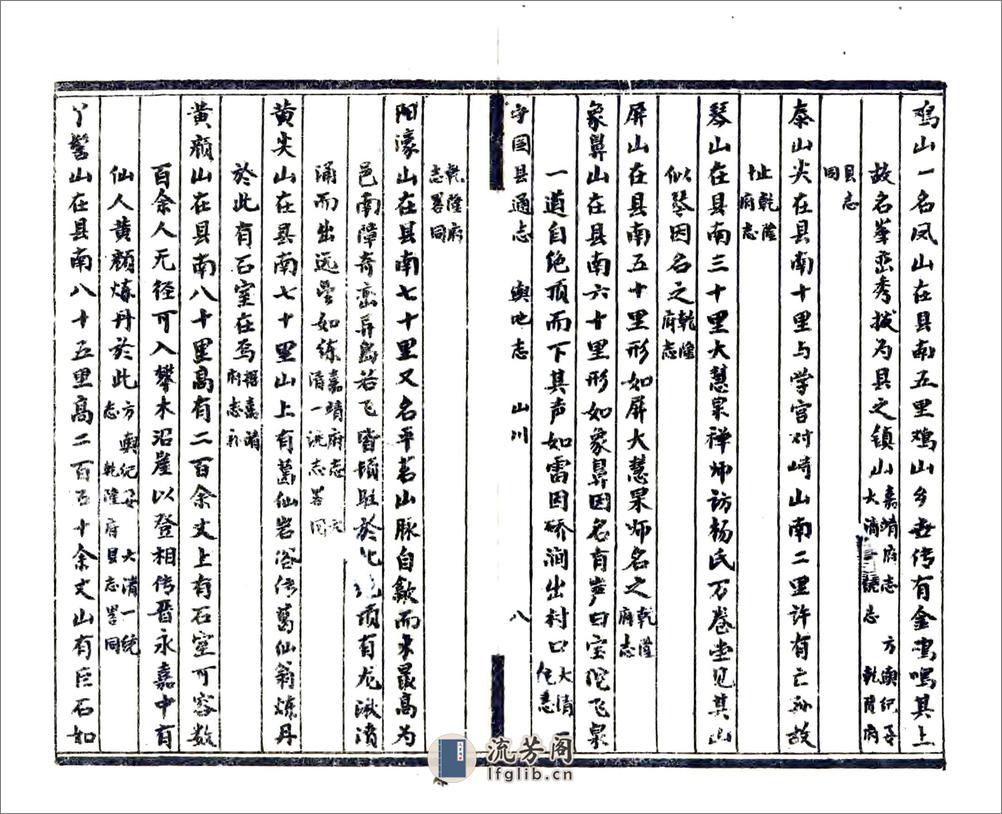 鸡山一名凤山在县南五里鸡山乡世传有金鸡鸣其上
故名峯峦秀拔为县之镇山嘉靖府志 方舆纪要 大清一统志 乾隆府
县志
同
泰山尖在县南十里与学宫对峙山南二里许有亡孙故
址乾隆府志
琴山在县南三十里大慧杲禅师访杨氏万卷堂见其山
似琴因名之乾隆府志
屏山在县南五十里形如屏大慧杲师名之乾隆府志
象鼻山在县南六十里形如象鼻因名有岩曰宝陀飞泉
一道自绝顶而下其声如雷因硚涧出村口大清一统志
宁国县通志 舆地志 山川 八
乾隆府志署同
阳濠山在县南七十里又名平茗山脉自歙而来最高为
邑南障奇峦异岛若飞皆埧驻於此 顶有龙湫濆
涌而出远望如练嘉靖府志 大清一统志署同
黄尖山在县南七十里山上有葛仙岩俗传葛仙翁炼丹
於此有石室在焉据嘉靖府志补
黄颜山在县南八十里高有二百余丈上有石室可容数
百余人无径可入攀木沿崖以登相传晋永嘉中有
仙人黄颜炼丹於此方舆纪要 大清一统志 乾隆府县志署同
丫髻山在县南八十五里高二百五十余丈山有巨石如
流芳阁
lfglib.cn